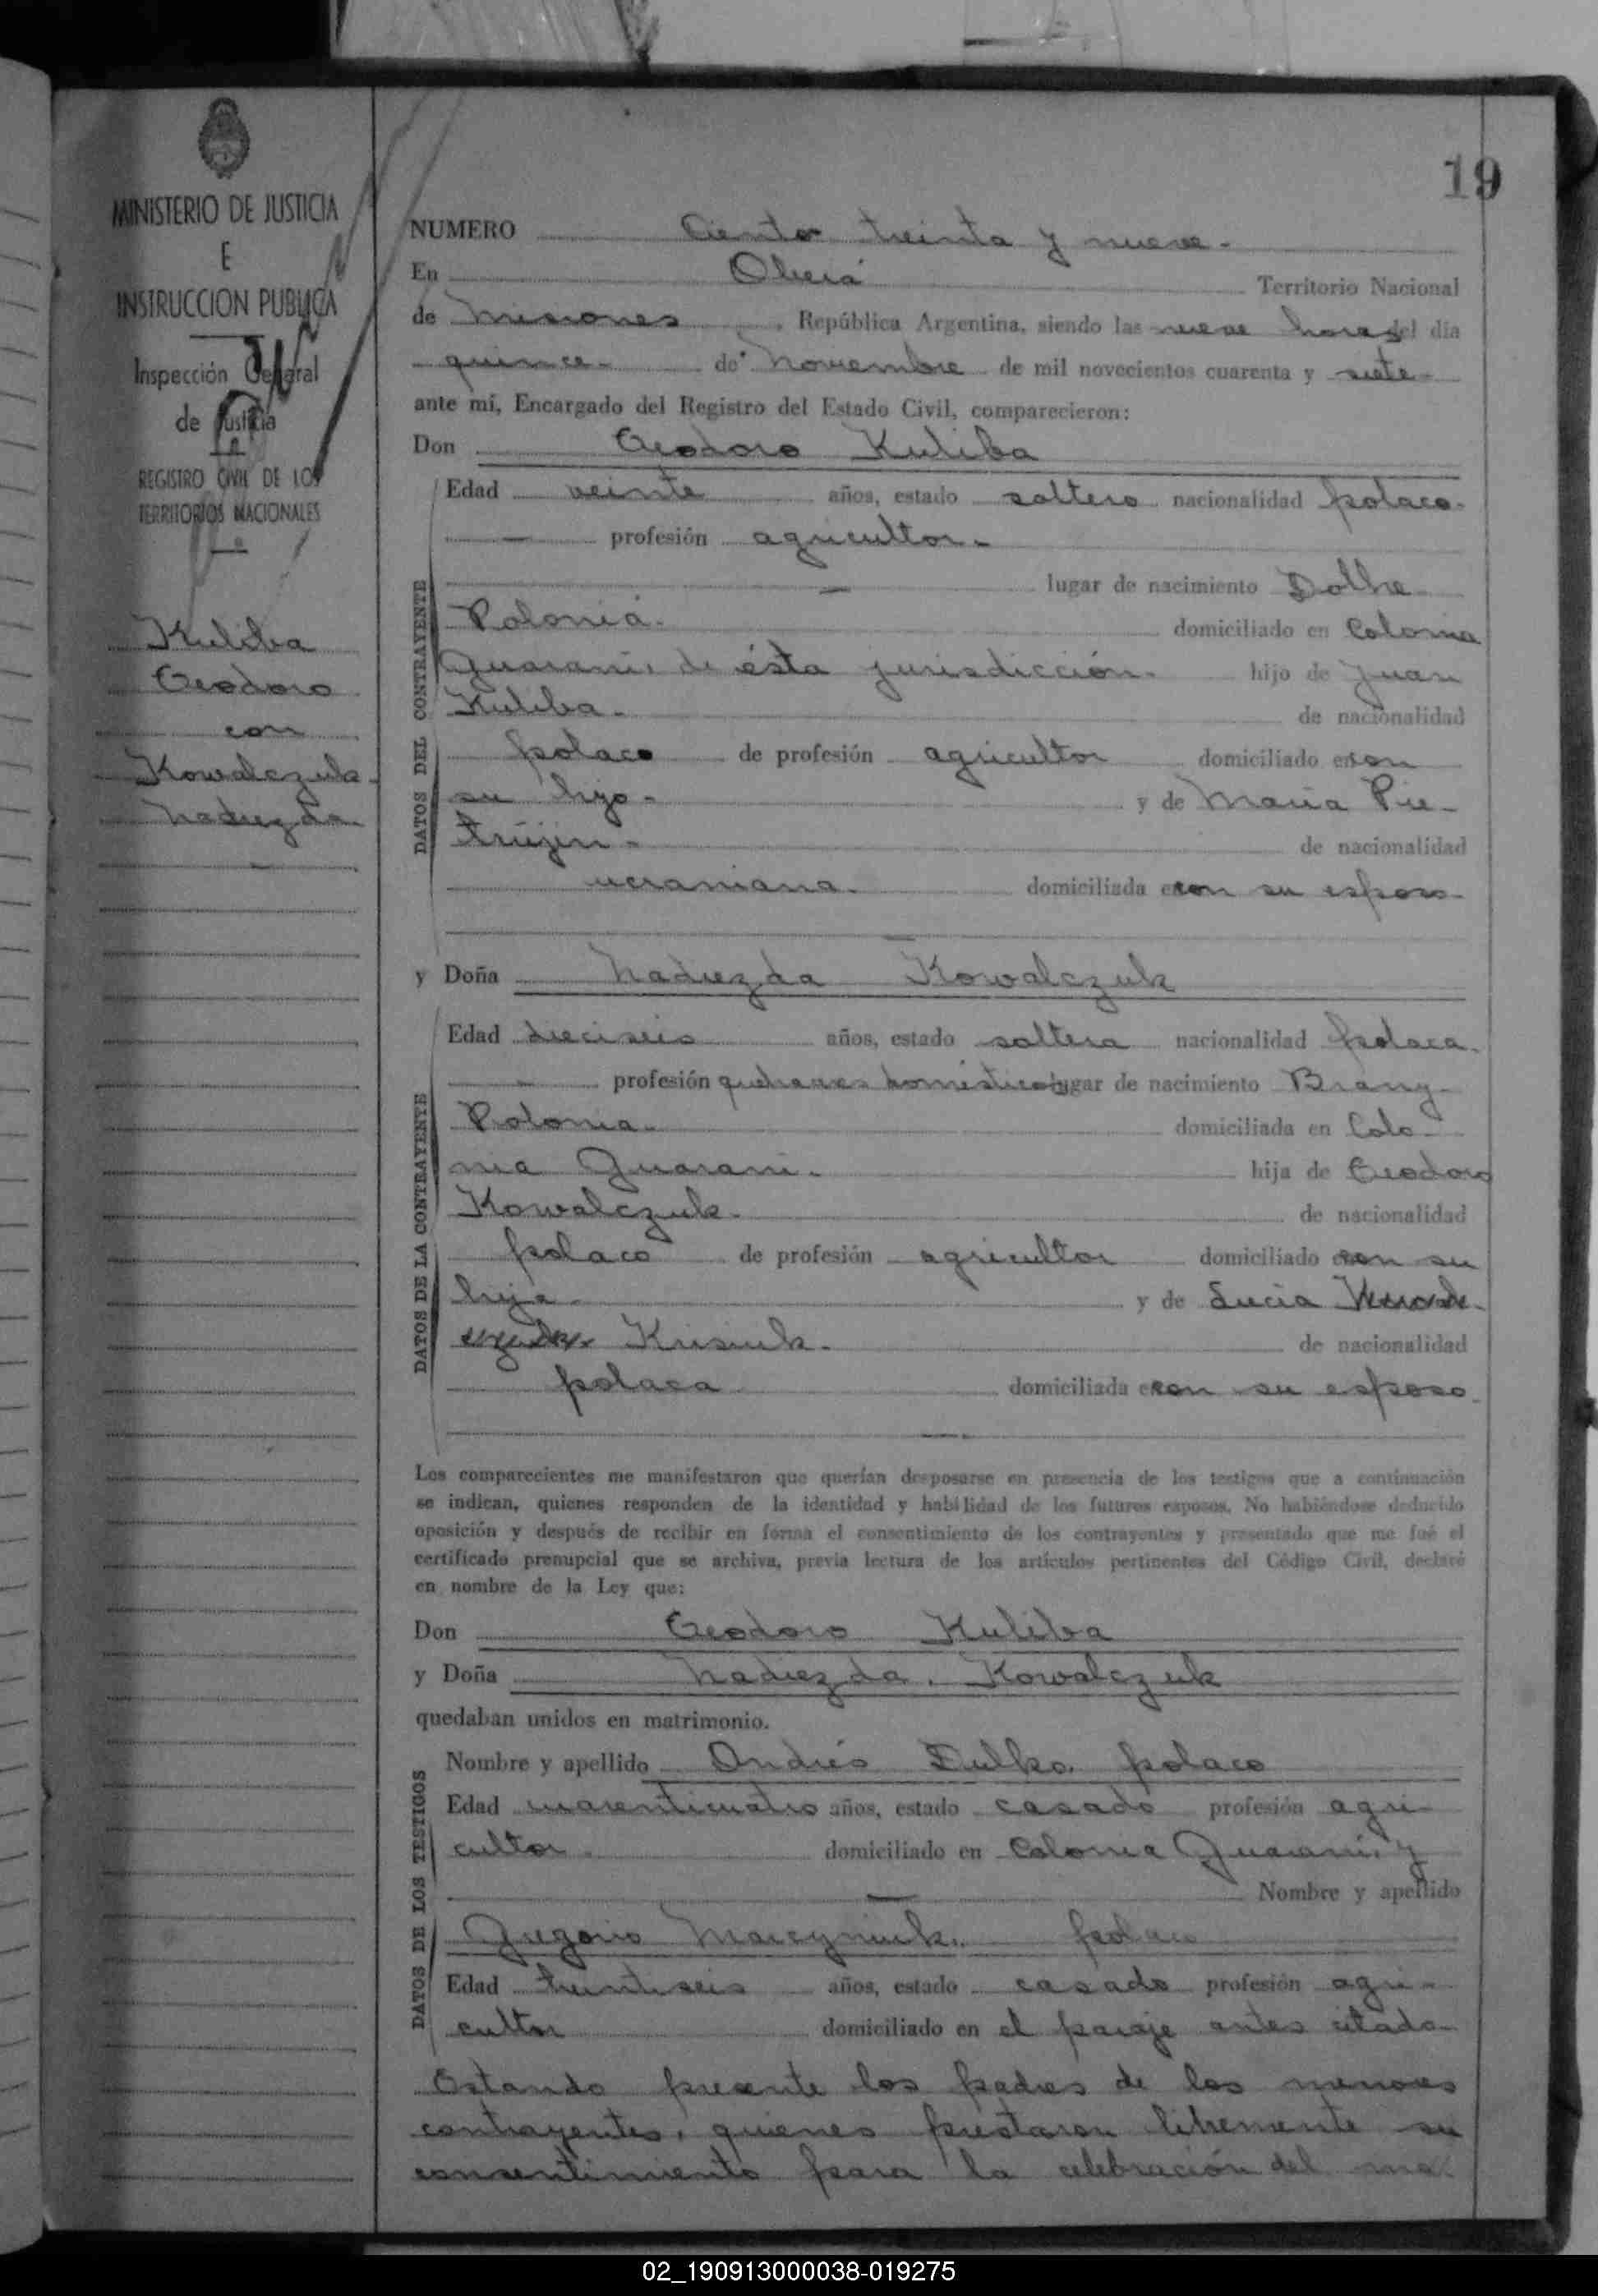 19
MINISTERIO DE JUSTICIA
E
INSTRUCCION PUBLICA
Inspección General
de Justicia
REGISTRO CIVIL DE LOS
TERRITORIOS NACIONALES
Kuliba
Teodoro
con
Kowalczuk
Nadiezda
NUMERO Ciento treinta y nueve.
En Oberá Territorio Nacional
de Misiones, República Argentina, siendo las nueve horas del día
quince de Noviembre de mil novecientos cuarenta y siete
ante mí, Encargado del Registro del Estado Civil, comparecieron:
Don Teodoro Kuliba
DATOS DEL CONTRAYENTE
Edad veinte años, estado soltero nacionalidad polaco.
profesión agricultor.
lugar de nacimiento Dolhe
Polonia. domiciliado en Colonia
Guaraní, de ésta jurisdicción. hijo de Juan
Kuliba. de nacionalidad
polaco de profesión agricultor domiciliado en con
su hijo. y de María Pie-
trujin. de nacionalidad
ucraniana. domiciliada en con su esposo.
y Doña Nadiezda Kowalczuk
DATOS DE LA CONTRAYENTE
Edad dieciseis años, estado soltera nacionalidad polaca.
profesión quehaceres domésticos lugar de nacimiento Brany
Polonia. domiciliada en Colo-
nia Guaraní. hija de Teodoro
Kowalczuk. de nacionalidad
polaco de profesión agricultor domiciliado en con su
hija. y de Lucía
Krisiuk. de nacionalidad
polaca domiciliada en con su esposo.
Los comparecientes me manifestaron que querían desposarse en presencia de los testigos que a continuación
se indican, quienes responden de la identidad y habilidad de los futuros esposos. No habiéndose deducido
oposición y después de recibir en forma el consentimiento de los contrayentes y presentado que me fué el
certificado prenupcial que se archiva, previa lectura de los artículos pertinentes del Código Civil, declaré
en nombre de la Ley que:
Don Teodoro Kuliba
y Doña Nadiezda Kowalczuk
quedaban unidos en matrimonio.
DATOS DE LOS TESTIGOS
Nombre y apellido Andrés Dulko, polaco
Edad cuarenticuatro años, estado casado profesión agri-
cultor. domiciliado en Colonia Guaraní, y
Nombre y apellido
Gregorio Marcyniuk, polaco
Edad treintiseis años, estado casado profesión agri-
cultor domiciliado en el paraje antes citado
Estando presente los padres de los menores
contrayentes, quienes prestaron libremente su
consentimiento para la celebración del ma-
02_190913000038-019275